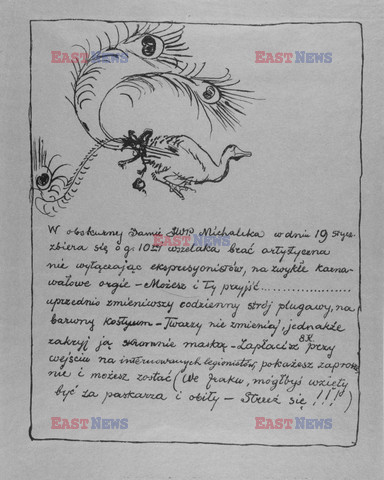 EASTNEWS EASTNEWS
EASTNEWS EASTNEWS
W obskurnej Jamie JWP. Michalika w dniu 19 stycz.
zbiera się o g. 10 wszelaka brać artystyczna
nie wyłączając ekspresyonistów, na zwykłe karna-
wałowe orgie – Możesz i Ty przyjść..................
uprzednio zmieniwszy codzienny strój plugawy, na
barwny kostyum – Twarzy nie zmieniaj, jednakże
zakryj ją maską – Zapłacisz 8K przy
wejściu na internowanych legionistów, pokażesz zaprosze-
nie i możesz zostać (We fraku, mógłbyś wzięty
być za paskarza i obity – Strzeż się !!! )
EASTNEWS EASTNEWS
EASTNEWS EASTNEWS